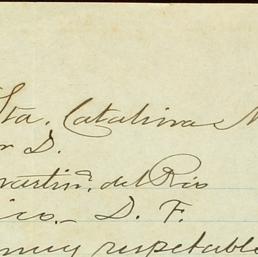 Sta. Catalina M
r D.
martin. del Rio
ico.- D. F.
muy respetable